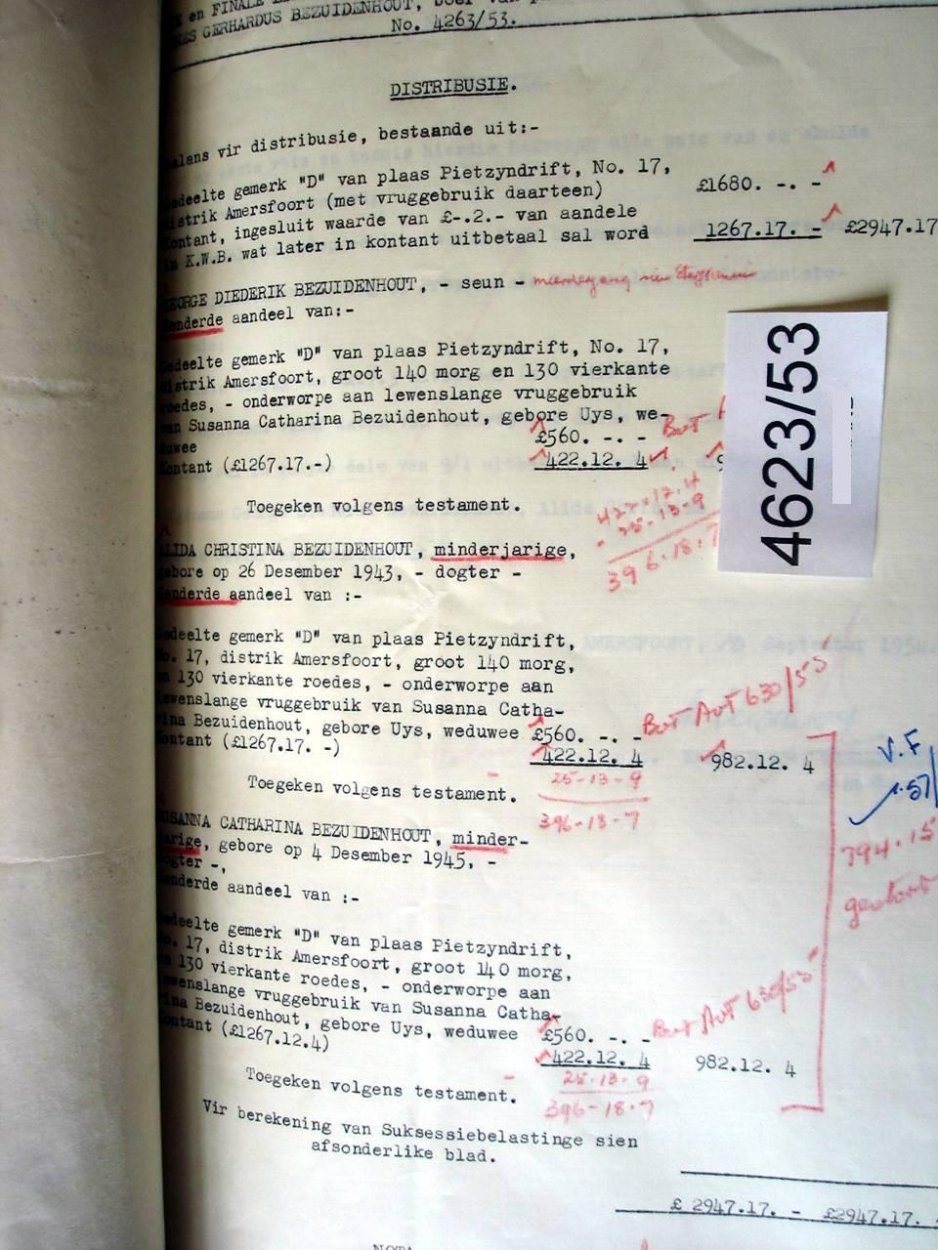 en FINALE
GERHARDUS BEZUIDENHOUT,
No. 4263/53.
DISTRIBUSIE.
alans vir distribusie, bestaande uit:-
edeelte gemerk "D" van plaas Pietzyndrift, No. 17,
distrik Amersfoort (met vruggebruik daarteen) £1680. -. -
ontant, ingesluit waarde van £-.2.- van aandele
in K.W.B. wat later in kontant uitbetaal sal word 1267.17. - £2947.17
EORGE DIEDERIK BEZUIDENHOUT, - seun -
enderde aandeel van:-
edeelte gemerk "D" van plaas Pietzyndrift, No. 17,
distrik Amersfoort, groot 140 morg en 130 vierkante
roedes, - onderworpe aan lewenslange vruggebruik
an Susanna Catharina Bezuidenhout, gebore Uys, we-
duwee £560. -. - Bet
ontant (£1267.17.-) 422.12. 4 9
Toegeken volgens testament.
422.12.4
- 25-13-9
396.18.7
4623/53
LIDA CHRISTINA BEZUIDENHOUT, minderjarige,
gebore op 26 Desember 1943, - dogter -
enderde aandeel van :-
edeelte gemerk "D" van plaas Pietzyndrift,
o. 17, distrik Amersfoort, groot 140 morg,
n 130 vierkante roedes, - onderworpe aan
ewenslange vruggebruik van Susanna Catha-
ina Bezuidenhout, gebore Uys, weduwee £560. -. - Bet Aut 630/55
ontant (£1267.17. -) 422.12. 4 982.12. 4
- 25-13-9
Toegeken volgens testament.
396-18-7
V.F
1.57
794.15
USANNA CATHARINA BEZUIDENHOUT, minder-
arige, gebore op 4 Desember 1945, -
ogter -,
enderde aandeel van :-
edeelte gemerk "D" van plaas Pietzyndrift,
o. 17, distrik Amersfoort, groot 140 morg,
n 130 vierkante roedes, - onderworpe aan
ewenslange vruggebruik van Susanna Catha-
ina Bezuidenhout, gebore Uys, weduwee £560. -. - Bet Aut 630/55
ontant (£1267.12.4) 422.12. 4 982.12. 4
- 25-13-9
Toegeken volgens testament.
396-18-7
Vir berekening van Suksessiebelastinge sien
afsonderlike blad.
£ 2947.17. - £2947.17.
NOTA